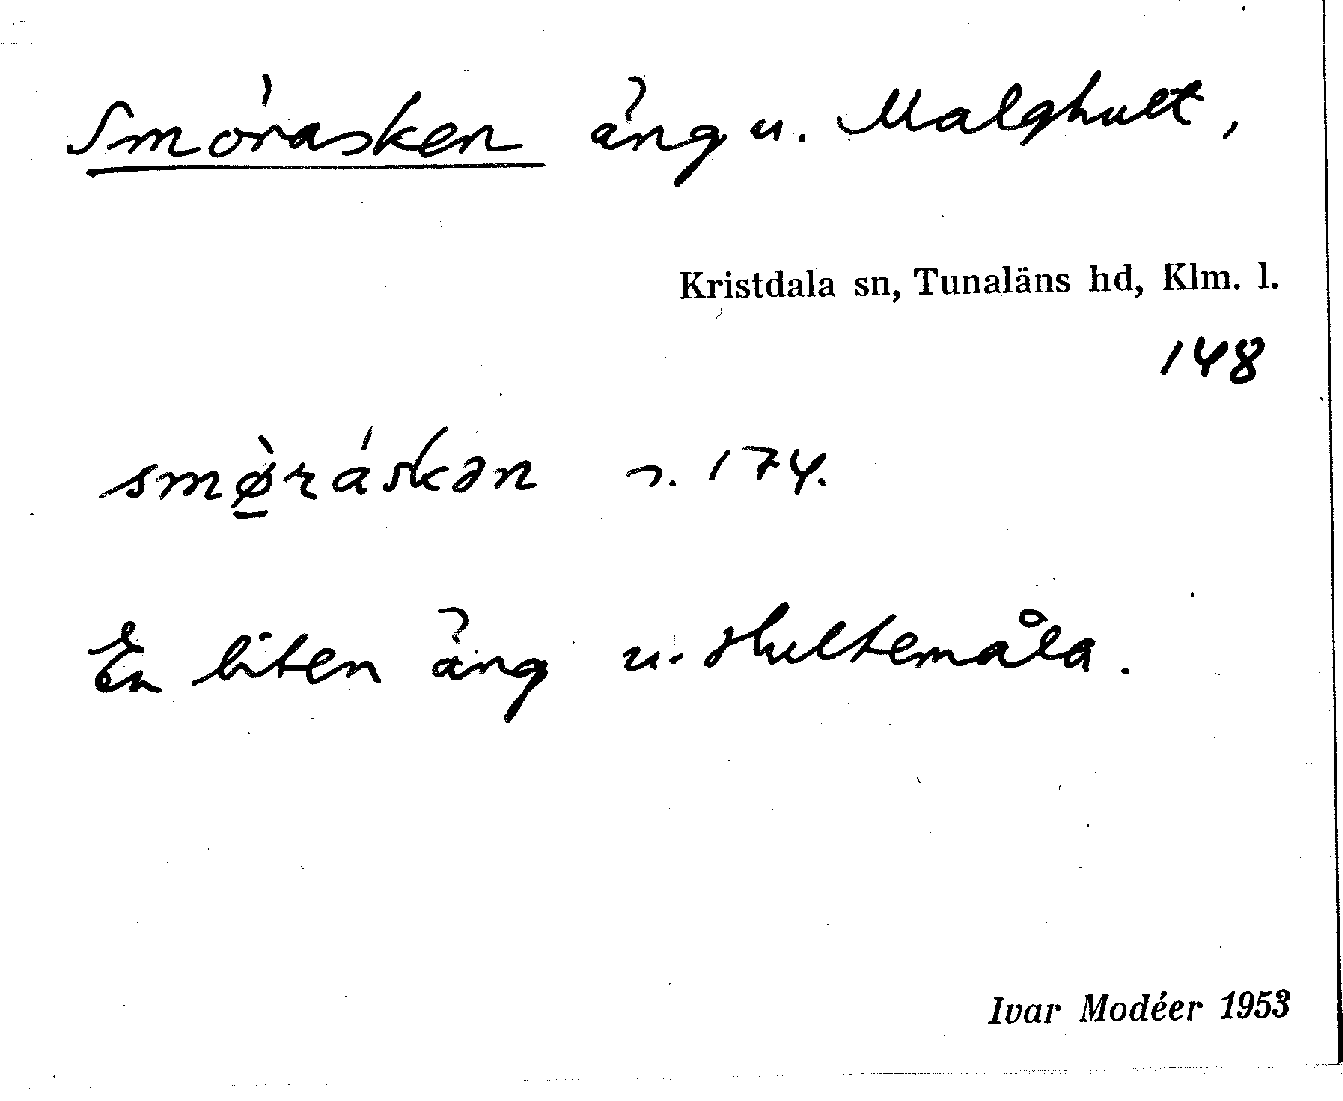 Smörasken äng u. Malghult,
Kristdala sn, Tunaläns hd, Klm. l.
148
smø̠̀ráskən s. 174.
En liten äng u. Hultemåla.
Ivar Modéer 1953